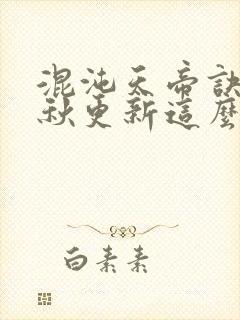 混沌天帝訣
秋更新這麼
白素素